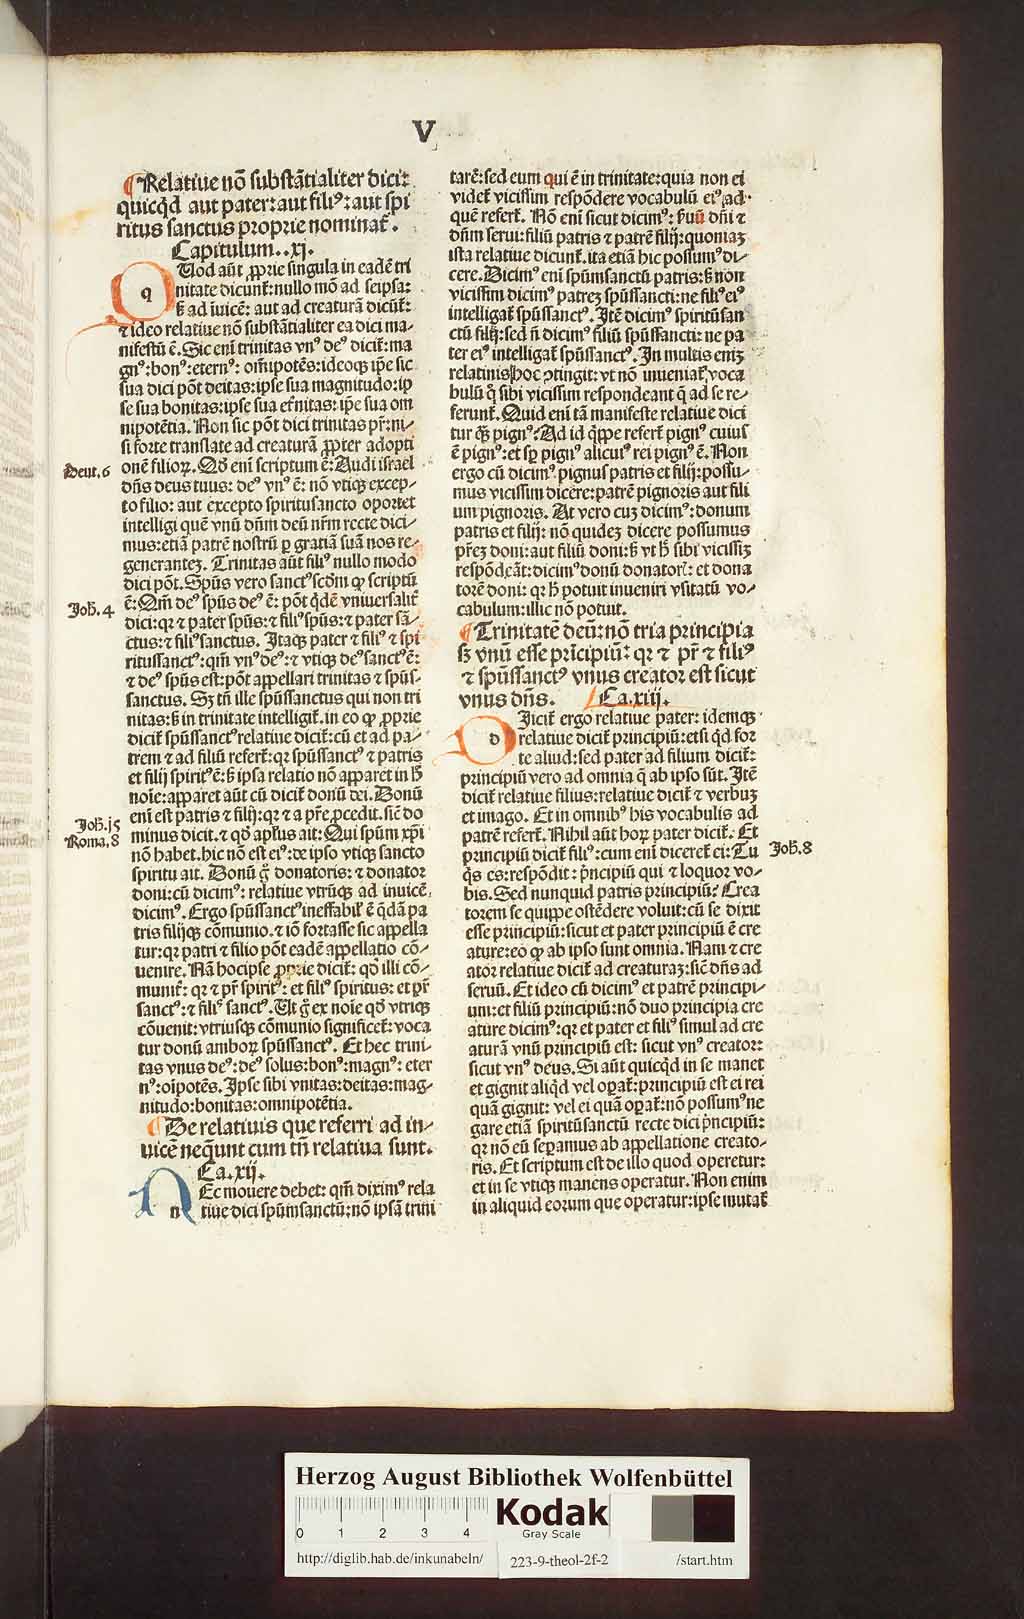 V
¶ Relatiue nō substātialiter dici:
quicqd aut pater: aut filiꝰ: aut spi
ritus sanctus proprie nominat̃.
Capitulum. .xj.
q Uod aūt ꝓprie singula in eadē tri
nitate dicunt̃: nullo mō ad seipsa:
ß ad iuicē: aut ad creaturā dicūt̃:
⁊ ideo relatiue nō substātialiter ea dici ma-
nifestū ē. Sic enī trinitas vnꝰ deꝰ dicit̃: ma
gnꝰ: bonꝰ: eternꝰ: omīpotēs: ideoqꝫ ip̄e sic
sua dici pōt deitas: ipse sua magnitudo: ip
se sua bonitas: ipse sua et̃nitas: ip̄e sua om
nipotētia. Non sic pōt dici trinitas pr̄: ni-
si forte translate ad creaturā ꝓpter adopti
Deut. 6
onē filioꝝ. Qd̄ enī scriptum ē: Audi israel
dn̄s deus tuus: deꝰ vnꝰ ē: nō vtiqꝫ excep-
to filio: aut excepto spiritusancto oportet
intelligi quē vnū dn̄m deū nr̄m recte dici-
mus: etiā patrē nostrū ꝑ gratiā suā nos re-
generanteꝫ. Trinitas aūt filiꝰ nullo modo
dici pōt. Spūs vero sanctꝰ scd̄m ꝙ scriptū
Joh. 4
ē: Qm̄ deꝰ spūs deꝰ ē: pōt qdē vniuersalit̃
dici: qꝛ ⁊ pater spūs: ⁊ filiꝰ spūs: ⁊ pater sā-
ctus: ⁊ filiꝰ sanctus. Itaqꝫ pater ⁊ filiꝰ ⁊ spi
ritussanctꝰ: qm̄ vnꝰ deꝰ: ⁊ vtiqꝫ deꝰ sanctꝰ ē:
⁊ deꝰ spūs est: pōt appellari trinitas ⁊ spūs-
sanctus. Sꝫ tn̄ ille spūssanctus qui non tri
nitas: ß in trinitate intelligit̃. in eo ꝙ ꝓprie
dicit̃ spūssanctꝰ relatiue dicit̃: cū et ad pa-
trem ⁊ ad filiū refert̃: qꝛ spūssanctꝰ ⁊ patris
et filij spiritꝰ ē: ß ipsa relatio nō apparet in h̄
noīe: apparet aūt cū dicit̃ donū dei. Donū
enī est patris ⁊ filij: qꝛ ⁊ a pr̄e ꝓcedit. sic̄ do
Joh. j5
Roma. 8
minus dicit. ⁊ qd̄ apl̄us ait: Qui spūm xp̄i
nō habet. hic nō est eiꝰ: de ipso vtiqꝫ sancto
spiritu ait. Donū g̊ donatoris: ⁊ donator
doni: cū dicimꝰ: relatiue vtrūqꝫ ad inuicē
dicimꝰ. Ergo spūssanctꝰ ineffabil' ē qdā pa
tris filijqꝫ cōmunio. ⁊ iō fortasse sic appella
tur: qꝛ patri ⁊ filio pōt eadē appellatio cō-
uenire. Nā hocipse ꝓprie dicit̃: qd̄ illi cō-
munit̃: qꝛ ⁊ pr̄ spiritꝰ: et filiꝰ spiritus: et pr̄
sanctꝰ: ⁊ filiꝰ sanctꝰ. Ut g̊ ex noīe qd̄ vtriqꝫ
cōuenit: vtriusqꝫ cōmunio significet̃: voca
tur donū amboꝝ spūssanctꝰ. Et hec trini-
tas vnus deꝰ: deꝰ solus: bonꝰ: magnꝰ: eter
nꝰ: oīpotēs. Ipse sibi vnitas: deitas: mag-
nitudo: bonitas: omnipotētia.
¶ De relatiuis que referri ad in-
uicē neqūnt cum tn̄ relatiua sunt.
Ca. xij.
n Ec mouere debet: qm̄ diximꝰ rela
tiue dici spūmsanctū: nō ipsā trini
tatē: sed eum qui ē in trinitate: quia non ei
videt̃ vicissim respōdere vocabulū eiꝰ ad
quē refert̃. Nō enī sicut dicimꝰ: ẜuū dn̄i ⁊
dn̄m serui: filiū patris ⁊ patrē filij: quoniaꝫ
ista relatiue dicunt̃. ita etiā hic possumꝰ di-
cere. Dicimꝰ enī spūmsanctū patris: ß non
vicissim dicimꝰ patreꝫ spūssancti: ne filiꝰ eiꝰ
intelligat̃ spūssanctꝰ. Itē dicimꝰ spiritū san
ctū filij: sed n̄ dicimꝰ filiū spūssancti: ne pa
ter eiꝰ intelligat̃ spūssanctꝰ. In multis eniꝫ
relatinis hoc ꝯtingit: vt nō inueniat̃ voca
bulū q̊ sibi vicissim respondeant q̄ ad se re-
ferunt̃. Quid enī tā manifeste relatiue dici
tur qꝫ pignꝰ? Ad id qppe refert̃ pignꝰ cuius
ē pignꝰ: et sꝑ pignꝰ alicuiꝰ rei pignꝰ ē. Non
ergo cū dicimꝰ pignus patris et filij: possu-
mus vicissim dicere: patrē pignoris aut fili
um pignoris. At vero cuꝫ dicimꝰ: donum
patris et filij: nō quideꝫ dicere possumus
pr̄eꝫ doni: aut filiū doni: ß vt h̄ sibi vicissiꝫ
respōdeāt: dicimꝰ donū donatorꝭ: et dona
torē doni: qꝛ h̄ potuit inueniri vsitatū vo-
cabulum: illic nō potuit.
¶ Trinitatē deū: nō tria principia
sꝫ vnū esse prīcipiū: qꝛ ⁊ pr̄ ⁊ filiꝰ
⁊ spūssanctꝰ vnus creator est sicut
vnus dn̄s. Ca. xiij.
d Icit̃ ergo relatiue pater: idemqꝫ
relatiue dicit̃ principiū: etsi qd for
te aliud: sed pater ad filium dicit̃:
principiū vero ad omnia q̄ ab ipso sūt. Itē
dicit̃ relatiue filius: relatiue dicit̃ ⁊ verbuꝫ
et imago. Et in omnibꝰ his vocabulis ad
patrē refert̃. Nihil aūt hoꝝ pater dicit̃. Et
Joh. 8
principiū dicit̃ filiꝰ: cum enī diceret̃ ei: Tu
qs es: respōdit: pͥncipiū qui ⁊ loquor vo-
bis. Sed nunquid patris principiū? Crea
torem se quippe ostēdere voluit: cū se dixit
esse principiū: sicut et pater principiū ē cre
ature: eo ꝙ ab ipso sunt omnia. Nam ⁊ cre
ator relatiue dicit̃ ad creaturaꝫ: sic̄ dn̄s ad
seruū. Et ideo cū dicimꝰ et patrē principi-
um: et filiū principiū: nō duo principia cre
ature dicimꝰ: qꝛ et pater et filiꝰ simul ad cre
aturā vnū principiū est: sicut vnꝰ creator:
sicut vnꝰ deus. Si aūt quicqd in se manet
et gignit aliqd vel oꝑat̃: principiū est ei rei
quā gignit: vel ei quā oꝑat̃: nō possumꝰ ne
gare etiā spiritūsanctū recte dici pͥncipiū:
qꝛ nō eū seꝑamus ab appellatione creato-
ris. Et scriptum est de illo quod operetur:
et in se vtiqꝫ manens operatur. Non enim
in aliquid eorum que operatur: ipse mutat̃
Herzog August Bibliothek Wolfenbüttel
0 1 2 3 4
Kodak
Gray Scale
http://diglib.hab.de/inkunabeln/ 223-9-theol-2f-2 /start.htm